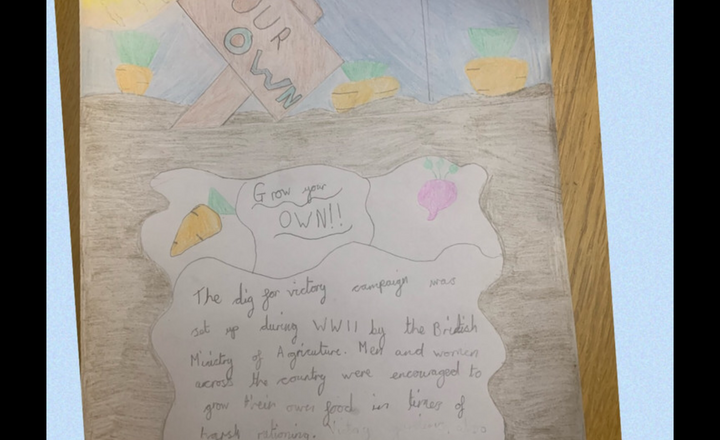 OUR
OWN
Grow your
OWN!!
The dig for victory campaign was
set up during WWII by the British
Ministry of Agriculture. Men and women
across the country were encouraged to
grow their own food in times of
harsh rationing.